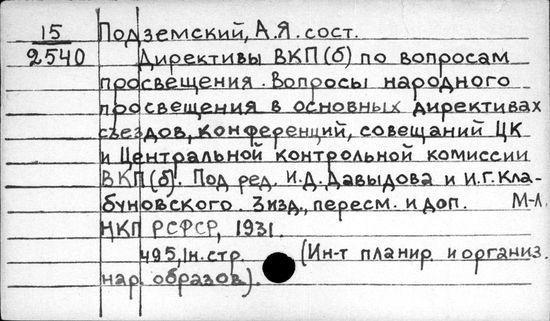 15 Подземский, А.Я. сост.
2540 Директивы ВКП(б) по вопросам
просвещения. Вопросы народного
просвещения в основных директивах
съездов, конференций, совещаний ЦК
и Центральной контрольной комиссии
ВКП(б). Под ред. И.Д. Давыдова и И.Г. Кла-
буновского. 3 изд., пересм. и доп. М-Л.
НКП РСФСР, 1931.
495, 1 н. стр. (Ин-т планир. и организ.
нар. образов.).